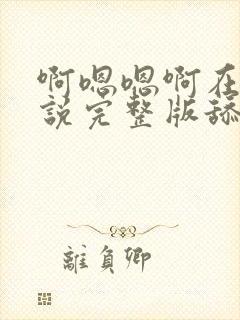 啊嗯嗯啊在
説完整版舔
離負卿